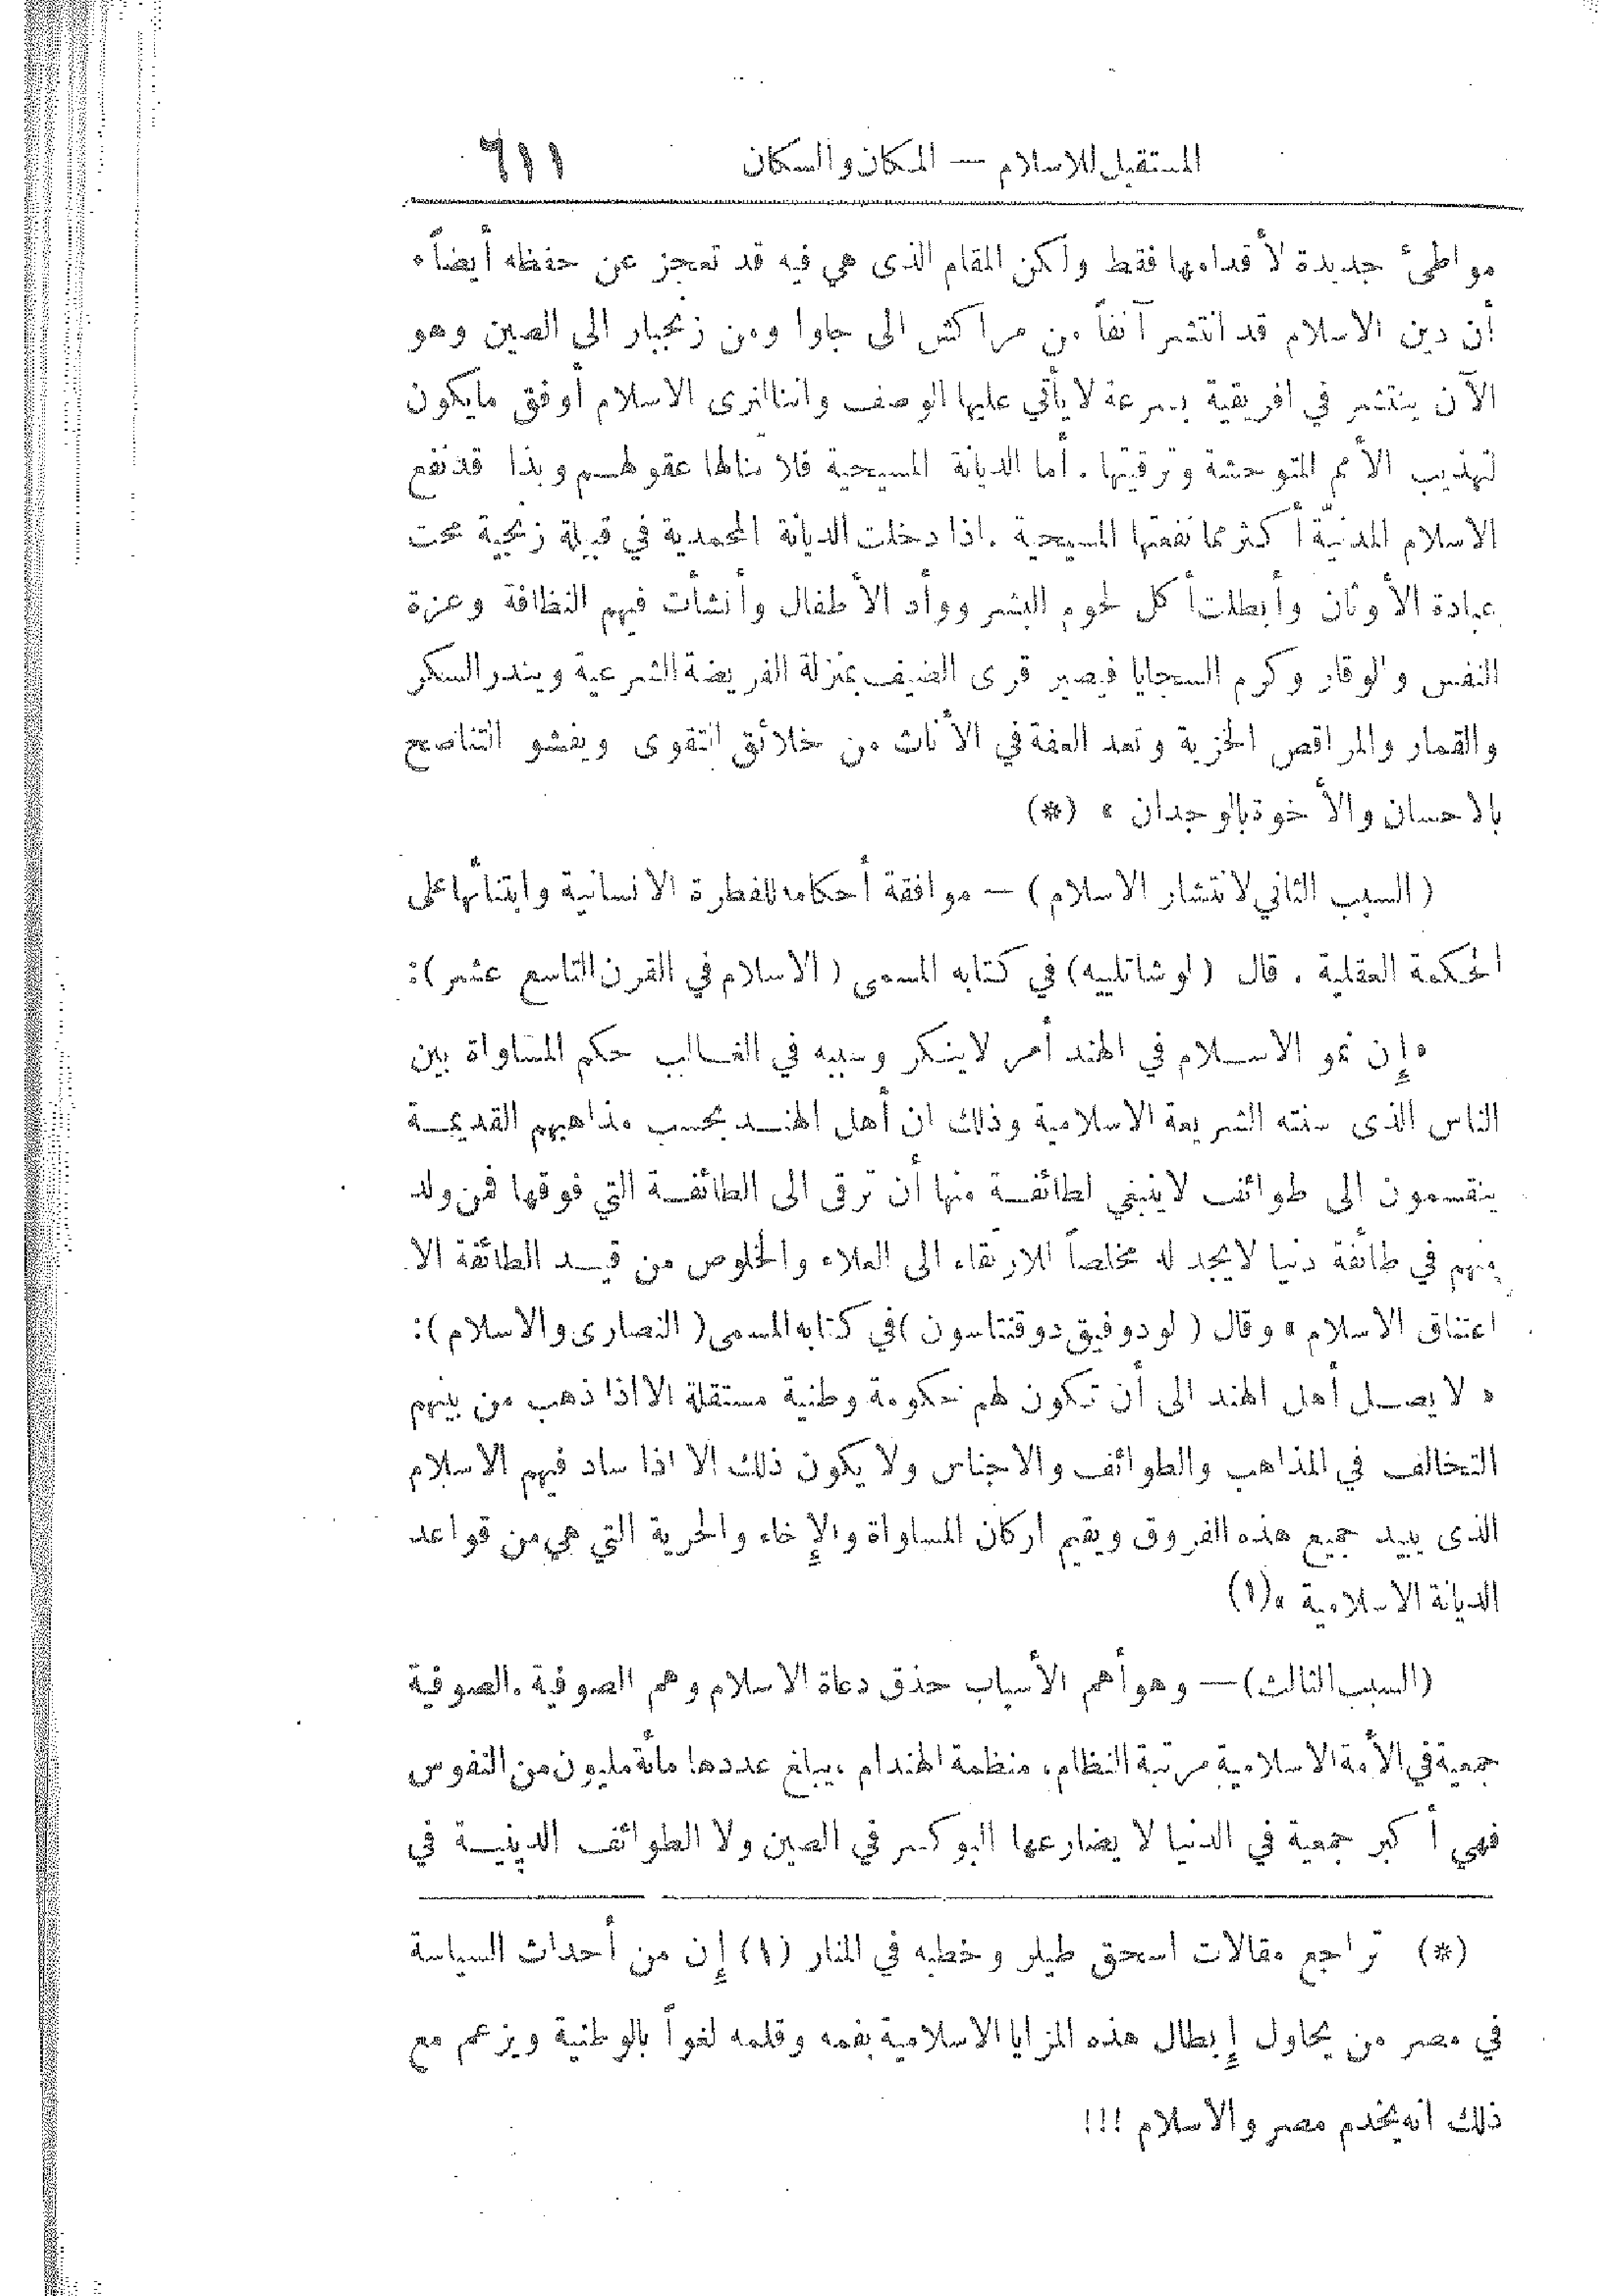 المستقبل للاسلام — المكان والسكان ٦١١
مواطئ جديدة لأقدامها فقط ولكن المقام الذى هي فيه قد تعجز عن حفظه أيضاً.
أن دين الاسلام قد انتشر آنفاً من مراكش الى جاوا ومن زنجبار الى الصين وهو
الآن ينتشر في افريقية بسرعة لا يأتي عليها الوصف واننا نرى الاسلام أوفق مايكون
لتهذيب الأمم المتوحشة وترقيتها . أما الديانة المسيحية فلا تنالها عقولهم وبذا قد نفع
الاسلام المدنيّة أكثر مما نفعتها المسيحية . اذا دخلت الديانة المحمدية في قبيلة زنجية محت
عبادة الأوثان وأبطلت أكل لحوم البشر ووأد الأطفال وأنشأت فيهم النظافة وعزة
النفس والوقار وكرم السجايا فيصير قرى الضيف بمنزلة الفريضة الشرعية ويندر السكر
والقمار والمراقص الخزية وتعد العفة في الأناث من خلائق التقوى ويفشو التناصح
بالاحسان والأخوة بالوجدان » (*)
(السبب الثاني لانتشار الاسلام) — موافقة أحكامه للفطرة الانسانية وابتنائها على
الحكمة العقلية . قال (لوشاتلييه) في كتابه المسمى (الاسلام في القرن التاسع عشر):
«إن نمو الاسلام في الهند أمر لاينكر وسببه في الغالب حكم المساواة بين
الناس الذى سنته الشريعة الاسلامية وذلك ان أهل الهند بحسب مذاهبهم القديمة
ينقسمون الى طوائف لاينبغي لطائفة منها أن ترقى الى الطائفة التي فوقها فمن ولد
منهم في طائفة دنيا لايجد له مخلصاً للارتقاء الى العلاء والخلوص من قيد الطائفة الا
اعتناق الاسلام » وقال (لودوفيق دوقنتاسون) في كتابه المسمى (النصارى والاسلام):
« لا يصل أهل الهند الى أن تكون لهم حكومة وطنية مستقلة الا اذا ذهب من بينهم
التخالف في المذاهب والطوائف والاجناس ولا يكون ذلك الا اذا ساد فيهم الاسلام
الذى يبيد جميع هذه الفروق ويقيم اركان المساواة والإخاء والحرية التي هي من قواعد
الديانة الاسلامية »(١)
(السبب الثالث) — وهو أهم الأسباب حذق دعاة الاسلام وهم الصوفية . الصوفية
جمعية في الأمة الاسلامية مرتبة النظام، منظمة الهندام ، يبلغ عددها مائة مليون من النفوس
فهي أكبر جمعية في الدنيا لا يضارعها البوكسر في الصين ولا الطوائف الدينية في
(*) تراجع مقالات اسحق طيلر وخطبه في المنار (١) إن من أحداث السياسة
في مصر من يحاول إبطال هذه المزايا الاسلامية بفمه وقلمه لغواً بالوطنية ويزعم مع
ذلك انه يخدم مصر والاسلام !!!